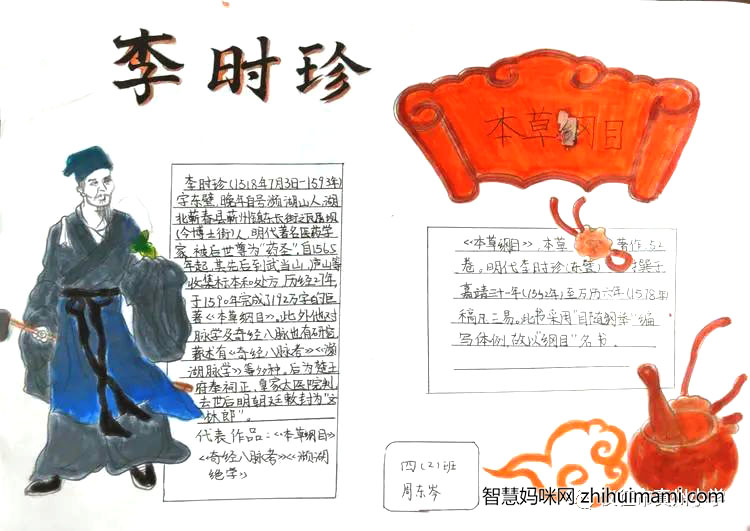 李时珍
李时珍(1518年7月3日-1593年)
字东璧,晚年自号濒湖山人,湖
北蕲春县蕲州镇东长街之瓦屑坝
(今博士街)人,明代著名医药学
家,被后世尊为"药圣",自1565
年起,其先后到武当山,庐山等
收集标本和处方,历经27年
于1590年完成了192万字的巨
著《本草纲目》。此外他对
脉学及奇经八脉也有研究
著述有《奇经八脉考》《濒
湖脉学》等多种。后为楚王
府奉祠正,皇家太医院判,
去世后明朝廷敕封为"文
林郎"。
代表作品:《本草纲目》
《奇经八脉考》《濒湖
绝学》
本草纲目
《本草纲目》,本草 著作,52
卷。明代李时珍(东璧) 撰于
嘉靖三十一年(1552年)至万历六年(1578年)
稿凡三易。此书采用"目随纲举"编
写体例,故以"纲目"名书.
四(2)班
周东岑
智慧妈咪网 zhihuimami.com